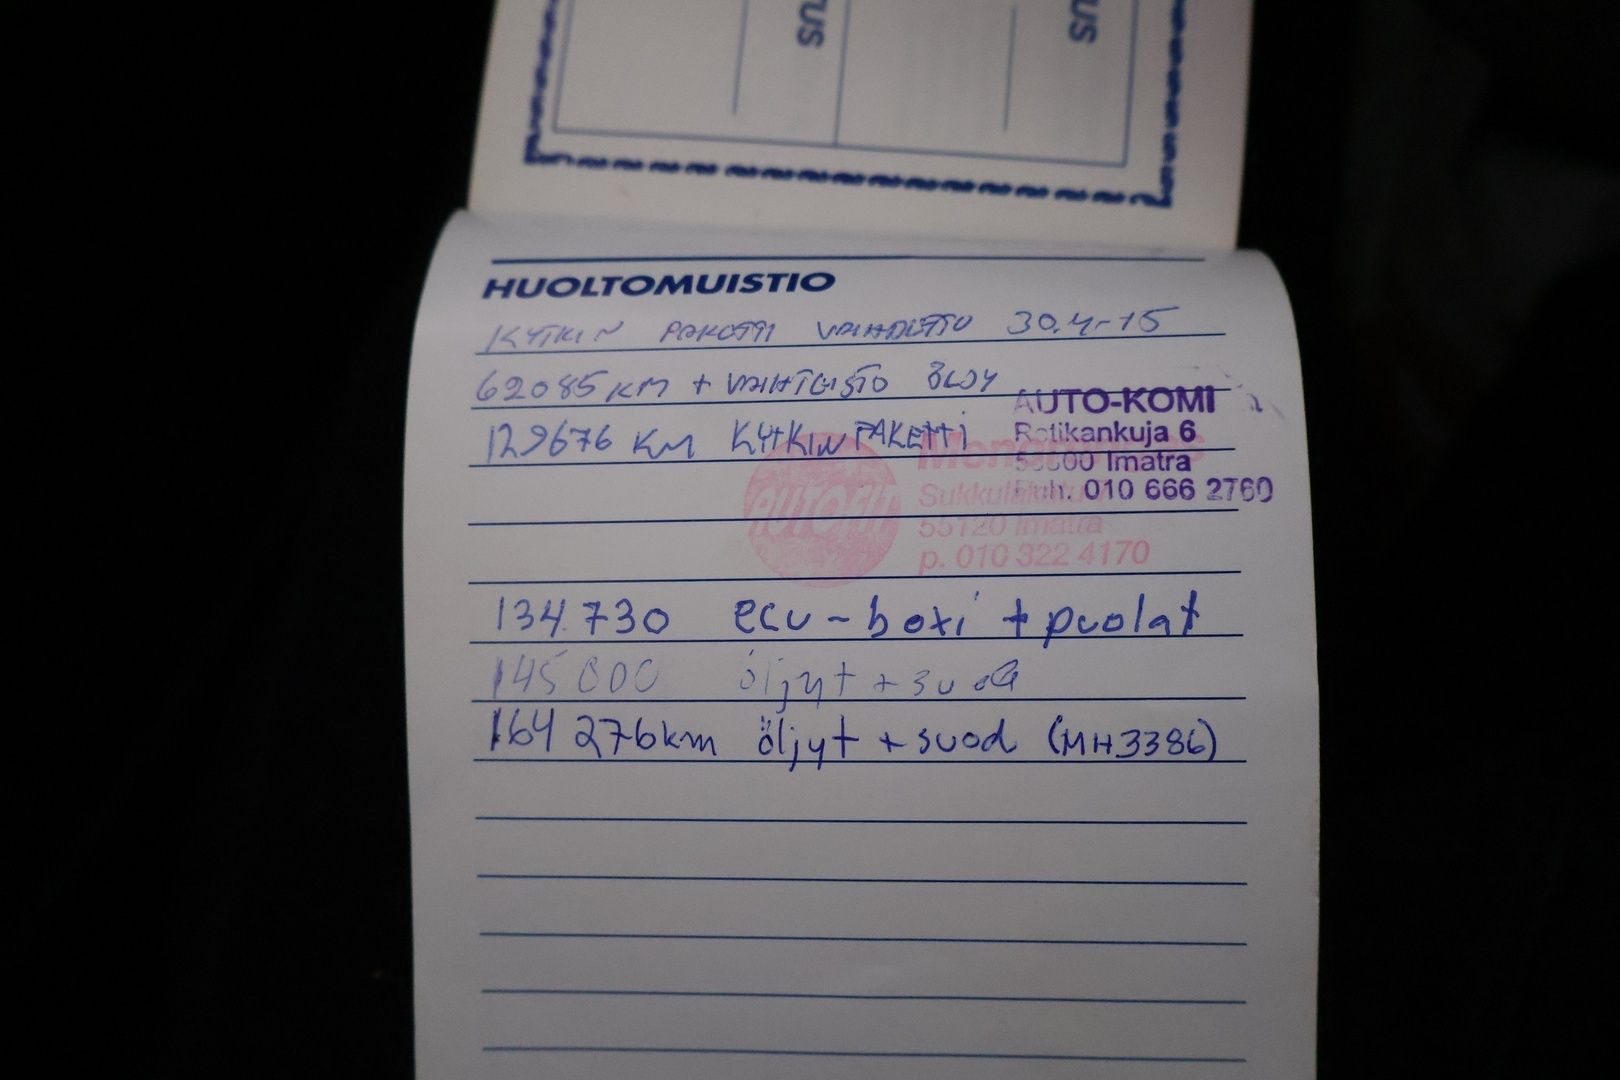 US
US
HUOLTOMUISTIO
KYTKIN PAKETTI VAIHDETTU 30.4-15
62085 KM + VAIHTEISTO ÖLJY
AUTO-KOMI
129676 KM KYTKIN PAKETTI
Ratikankuja 6
Imatra
Puh. 010 666 2760
AUTOFIT
55120 Imatra
p. 010 322 4170
134.730 ecu-boxi + puolat
145 000 öljyt + suod
164 276km öljyt + suod (MH3386)